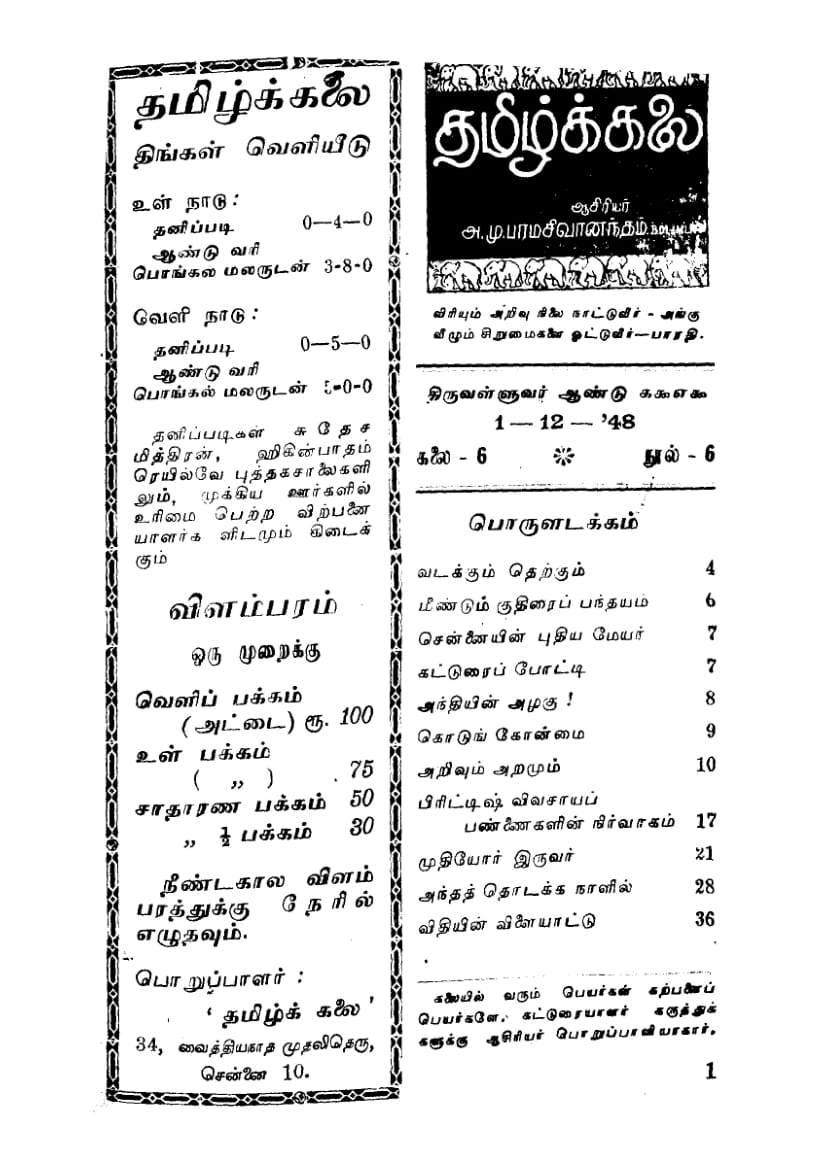 தமிழ்க்கலை
திங்கள் வெளியீடு
உள் நாடு:
தனிப்படி 0—4—0
ஆண்டு வரி
பொங்கல மலருடன் 3-8-0
வேளி நாடு:
தனிப்படி 0—5—0
ஆண்டு வரி
பொங்கல் மலருடன் 5-0-0
தனிப்படிகள் சுதேச
மித்திரன், ஹிகின்பாதம்
ரெயில்வே புத்தகசாலைகளி
லும், முக்கிய ஊர்களில்
உரிமை பெற்ற விற்பனை
யாளர்க ளிடமும் கிடைக்
கும்
விளம்பரம்
ஒரு முறைக்கு
வெளிப் பக்கம்
(அட்டை) ரூ. 100
உள் பக்கம்
( ,, ) . 75
சாதாரண பக்கம் 50
,, ½ பக்கம் 30
நீண்டகால விளம்
பரத்துக்கு நேரில்
எழுதவும்.
பொறுப்பாளர் :
‘ தமிழ்க் கலை ’
34, வைத்தியநாத முதலிதெரு,
சென்னை 10.
தமிழ்க்கலை
ஆசிரியர்
அ.மு.பரமசிவானந்தம்.
விரியும் அறிவு நிலை நாட்டுவீர் - அங்கு
வீழும் சிறுமைகளை ஓட்டுவீர்—பாரதி.
திருவள்ளுவர் ஆண்டு ௧௯௭௯
1 — 12 — '48
கலை - 6 நூல் - 6
பொருளடக்கம்
வடக்கும் தெற்கும் 4
மீண்டும் குதிரைப் பந்தயம் 6
சென்னையின் புதிய மேயர் 7
கட்டுரைப் போட்டி 7
அந்தியின் அழகு ! 8
கொடுங் கோன்மை 9
அறிவும் அறமும் 10
பிரிட்டிஷ் விவசாயப்
பண்ணைகளின் நிர்வாகம் 17
முதியோர் இருவர் 21
அந்தத் தொடக்க நாளில் 28
விதியின் விளையாட்டு 36
கலையில் வரும் பெயர்கள் கற்பனைப்
பெயர்களே. கட்டுரையாளர் கருத்துக்
களுக்கு ஆசிரியர் பொறுப்பாளியாகார்.
1